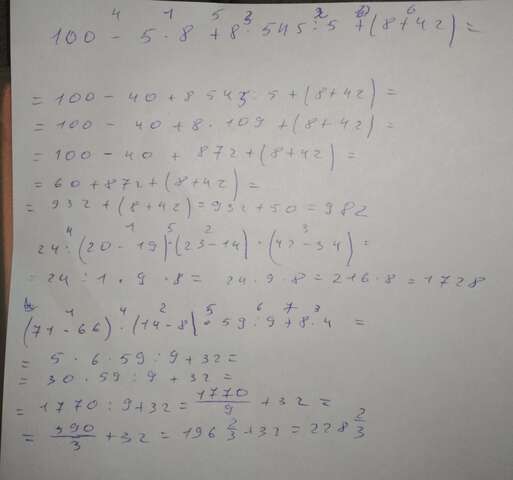 4 1 5 3 2 6 6
100 - 5 · 8 + 8 · 545 : 5 + (8+42) =
= 100 - 40 + 8 · 545 : 5 + (8+42) =
= 100 - 40 + 8 · 109 + (8+42) =
= 100 - 40 + 872 + (8+42) =
= 60 + 872 + (8+42) =
= 932 + (8+42) = 932 + 50 = 982
4 1 5 2 3
24 : (20 - 19) · (23 - 14) · (42 - 34) =
= 24 : 1 · 9 · 8 = 24 · 9 · 8 = 216 · 8 = 1728
1 4 2 5 6 7 3
(71 - 66) · (14 - 8) · 59 : 9 + 8 · 4 =
= 5 · 6 · 59 : 9 + 32 =
= 30 · 59 : 9 + 32 =
= 1770 : 9 + 32 = 1770/9 + 32 =
= 590/3 + 32 = 196 2/3 + 32 = 228 2/3